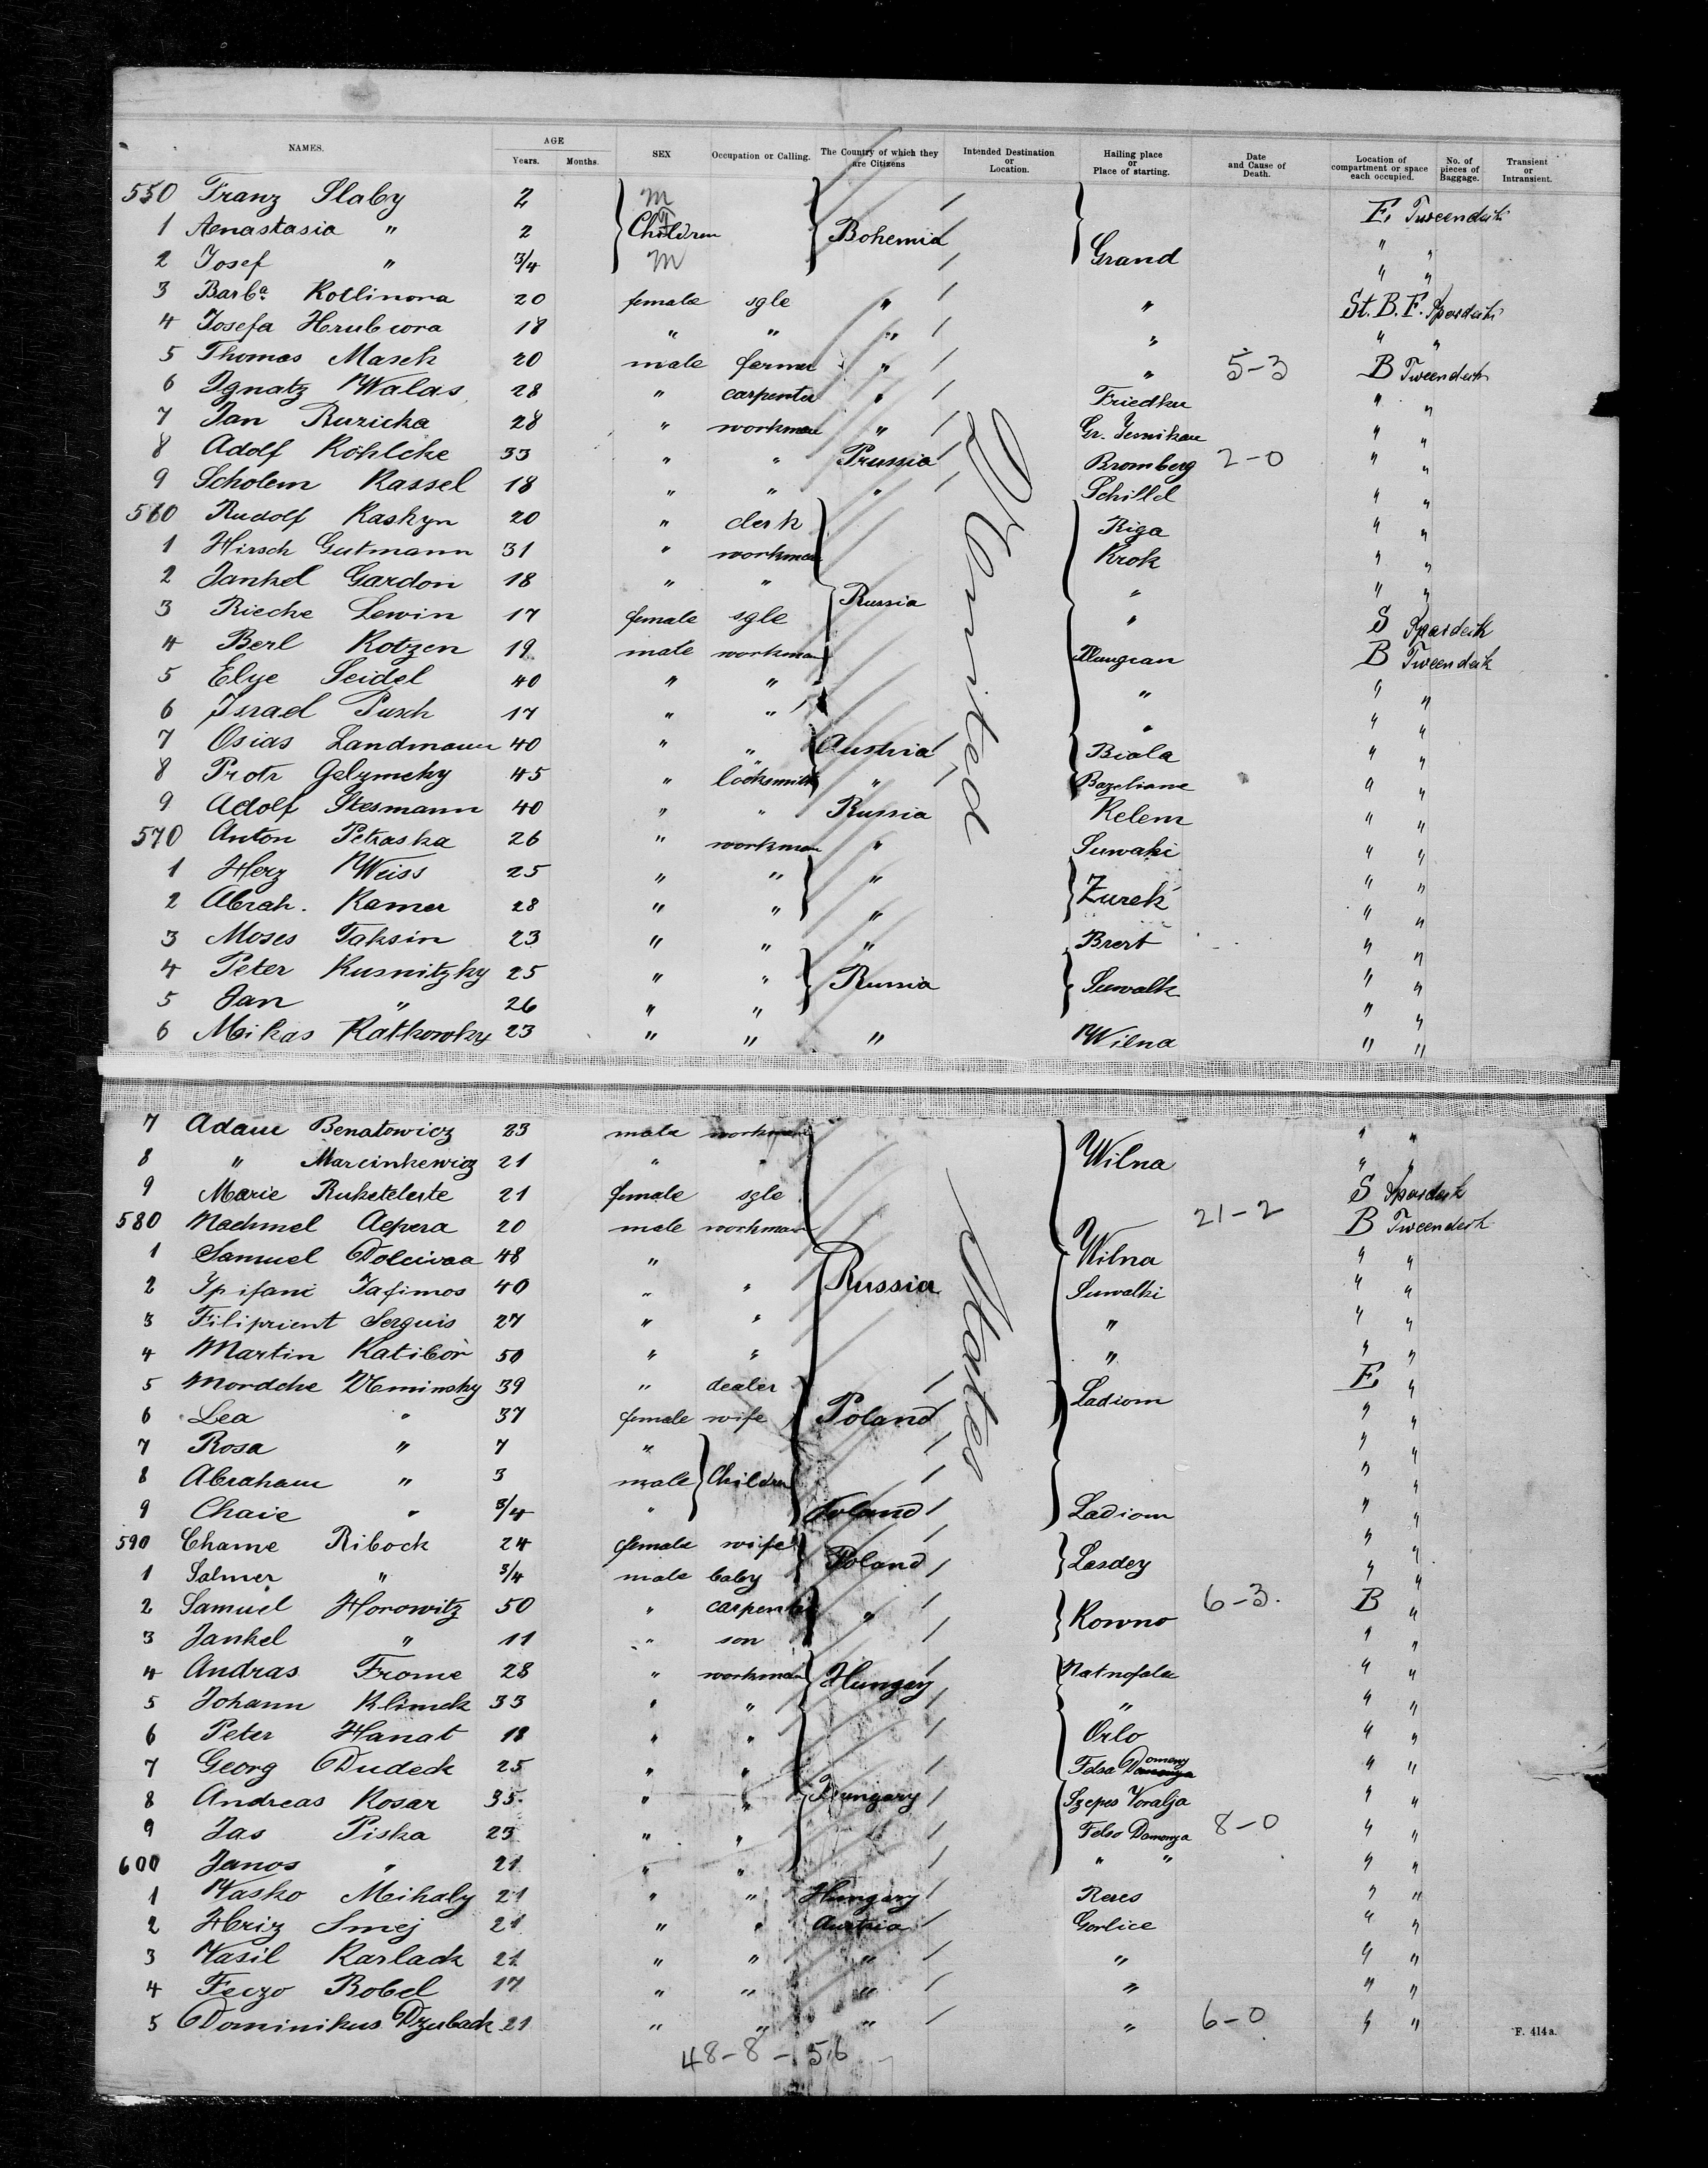 NAMES. AGE Years. Months. SEX Occupation or Calling. The Country of which they are Citizens Intended Destination or Location. Hailing place or Place of starting. Date and Cause of Death. Location of compartment or space each occupied. No. of pieces of Baggage. Transient or Intransient.
550 Franz Slaby 2 M E. Tweendeck
1 Aenastasia " 2 Children Bohemia " "
2 Josef " 3/4 M Grand " "
3 Barba. Kotlinova 20 female sgle " " St. B. F. Spardeck
4 Josefa 18 " " " " " "
5 Thomas Masek 20 male farmer " " 5-3 B Tweendeck
6 Ignatz Walas 28 " carpenter " " "
7 Jan Ruzicka 28 " workman " Gr. " "
8 Adolf Köhlcke 33 " " Prussia Bromberg 2-0 " "
9 Scholem Kassel 18 " " " Schilld " "
560 Rudolf Kaskyn 20 " clerk Riga " "
1 Hirsch Gutmann 31 " workman Krok " "
2 Jankel Gardon 18 " " Russia " " "
3 Rieche Lewin 17 female sgle " S Spardeck
4 Berl Kotzen 19 male workman B Tweendeck
5 Elye Seidel 40 " " " " "
6 Israel Pusch 17 " " " " "
7 Osias Landmann 40 " " Austria Biala " "
8 Protr Gelzmchy 45 " locksmith " " "
9 Adolf Stesmann 40 " " Russia Kelem " "
570 Anton Petraska 26 " workman " Suwaki " "
1 Herz Weiss 25 " " " Zurek " "
2 Abrah. Kamer 28 " " " " "
3 Moses Taksin 23 " " " Brert " "
4 Peter Kusnitzky 25 " " Russia Suwalk " "
5 Jan " 26 " " " "
6 Meikas Ratkowsky 23 " " " Wilna " "
United
7 Adam Benatowicz 23 male workman Wilna " "
8 " Marcinkewicz 21 " " " "
9 Marie Ruketeleste 21 female sgle S Spardeck
580 Nachmel Aepera 20 male workman 21-2 B Tweendeck
1 Samuel 48 " Wilna " "
2 Ipifani Tafimos 40 " " Russia Suwalki " "
3 Filiprient Serguis 27 " " " " "
4 Martin Katibor 50 " " " " "
5 Mordche 39 " dealer Ladiom E. "
6 Lea " 37 female wife Poland " "
7 Rosa " 7 " " "
8 Abraham " 3 male Children " "
9 Chaie " 3/4 " Poland Ladiom " "
590 Chame Ribock 24 female wife " "
1 Salmer " 3/4 male baby Poland Lesdey " "
2 Samuel Horowitz 50 " carpenter " Kowno 6-3. B "
3 Jankel " 11 " son " "
4 Andras Frome 28 " workman Hungary Natnofalu " "
5 Johann Klimek 33 " " " " "
6 Peter Hanat 18 " " Orlo " "
7 Georg Dudeck 25 " " Felsa Domeny " "
8 Andreas Kosar 35 " " Hungary Szepes Voralja " "
9 Jas Piska 23 " " Felso Domonya 8-0 " "
600 Janos " 21 " " " " " "
1 Wasko Mihaly 21 " " Hungary Reres " "
2 Hriz Smej 21 " " Austria Gorlice " "
3 Wasil Karlack 21 " " " " " "
4 Feczo Bobel 17 " " " " " "
5 Dominikus Dzuback 21 " " " " 6-0 " "
States
48-8-56
F. 414 a.